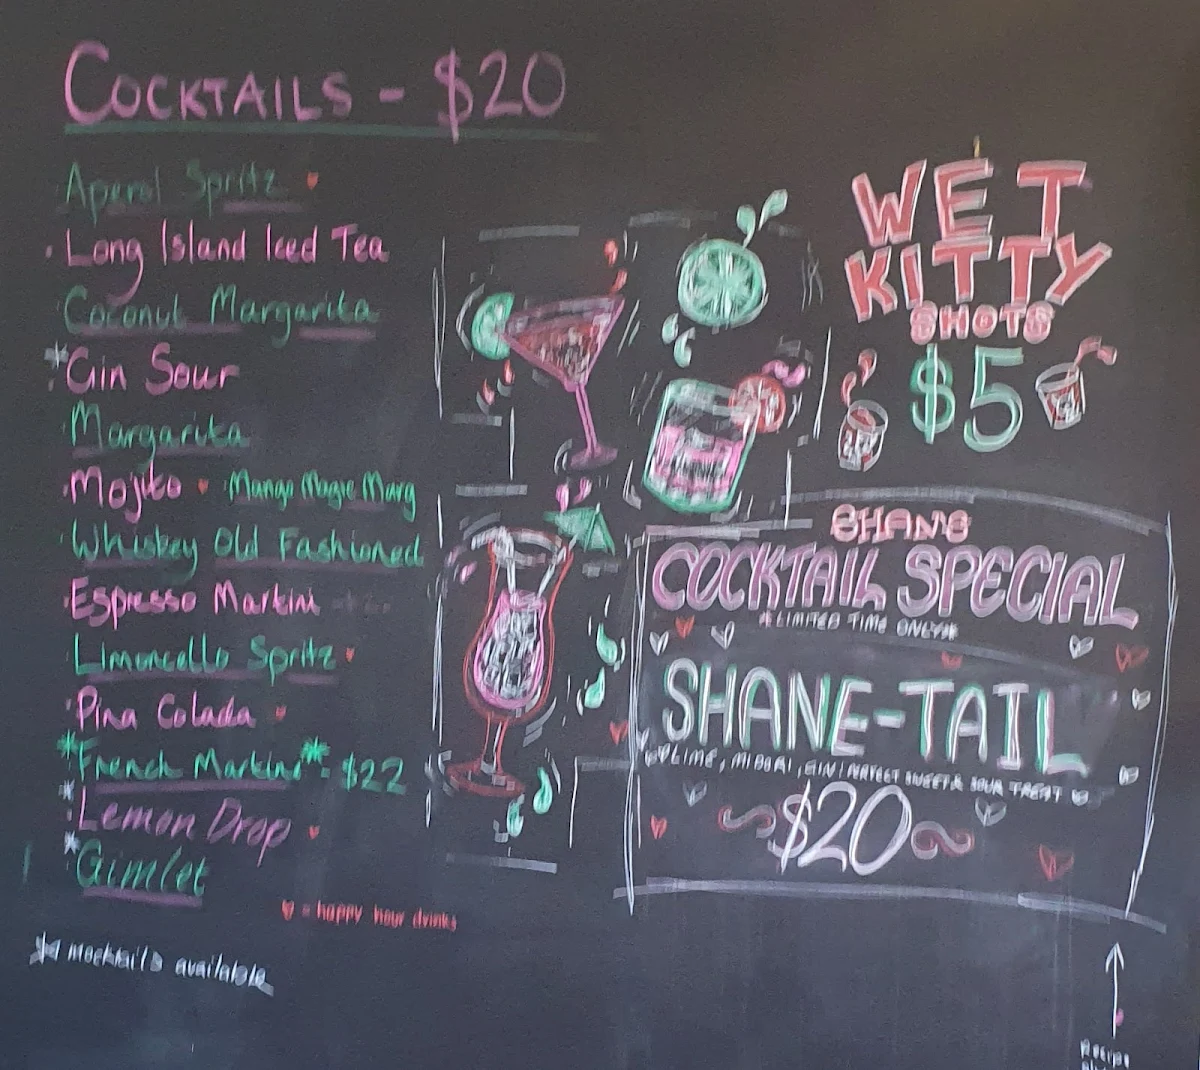 COCKTAILS - $20
Aperol Spritz ♥
· Long Island Iced Tea
Coconut Margarita
* · Gin Sour
Margarita
· Mojito ♥ · Mango Magic Marg
· Whiskey Old Fashioned
· Espresso Martini
· Limoncello Spritz ♥
· Pina Colada ♥
* French Martini * - $22
* · Lemon Drop ♥
* · Gimlet
♥ = happy hour drinks
* mocktails available
WET
KITTY
SHOTS
$5
SHANS
COCKTAIL SPECIAL
*LIMITED TIME ONLY*
SHANE-TAIL
LIME, MIDORI, GIN! SWEET & SOUR TREAT
$20